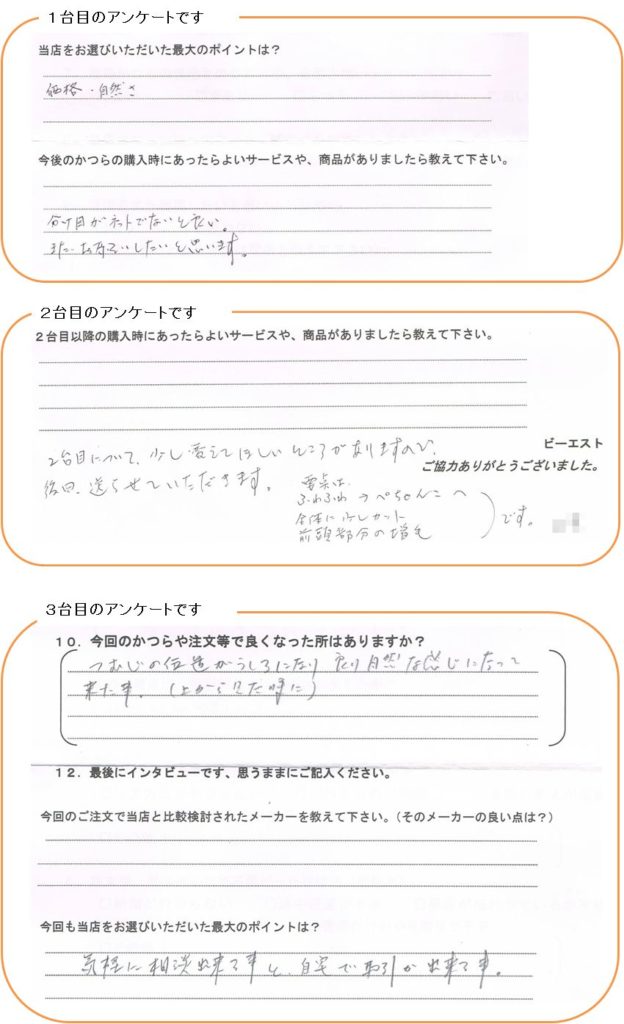 １台目のアンケートです
当店をお選びいただいた最大のポイントは？
価格・自然さ
今後のかつらの購入時にあったらよいサービスや、商品がありましたら教えて下さい。
分け目がネットでないと良い。
また、お願いしたいと思います。
２台目のアンケートです
２台目以降の購入時にあったらよいサービスや、商品がありましたら教えて下さい。
2台目について、少し変えてほしいところがありますので、
ビーエスト
ご協力ありがとうございました。
後日、送らせていただきます。
要点は、
ふわふわ→ぺちゃんこへ
全体に少しカット
前頭部分の増毛
です。
３台目のアンケートです
１０．今回のかつらや注文等で良くなった所はありますか？
つむじの位置がうしろになり 良り自然な感じになって
来た事。（上から見た時に）
１２．最後にインタビューです、思うままにご記入ください。
今回のご注文で当店と比較検討されたメーカーを教えて下さい。（そのメーカーの良い点は？）
今回も当店をお選びいただいた最大のポイントは？
気軽に相談出来る事と、自宅で取引が出来る事。